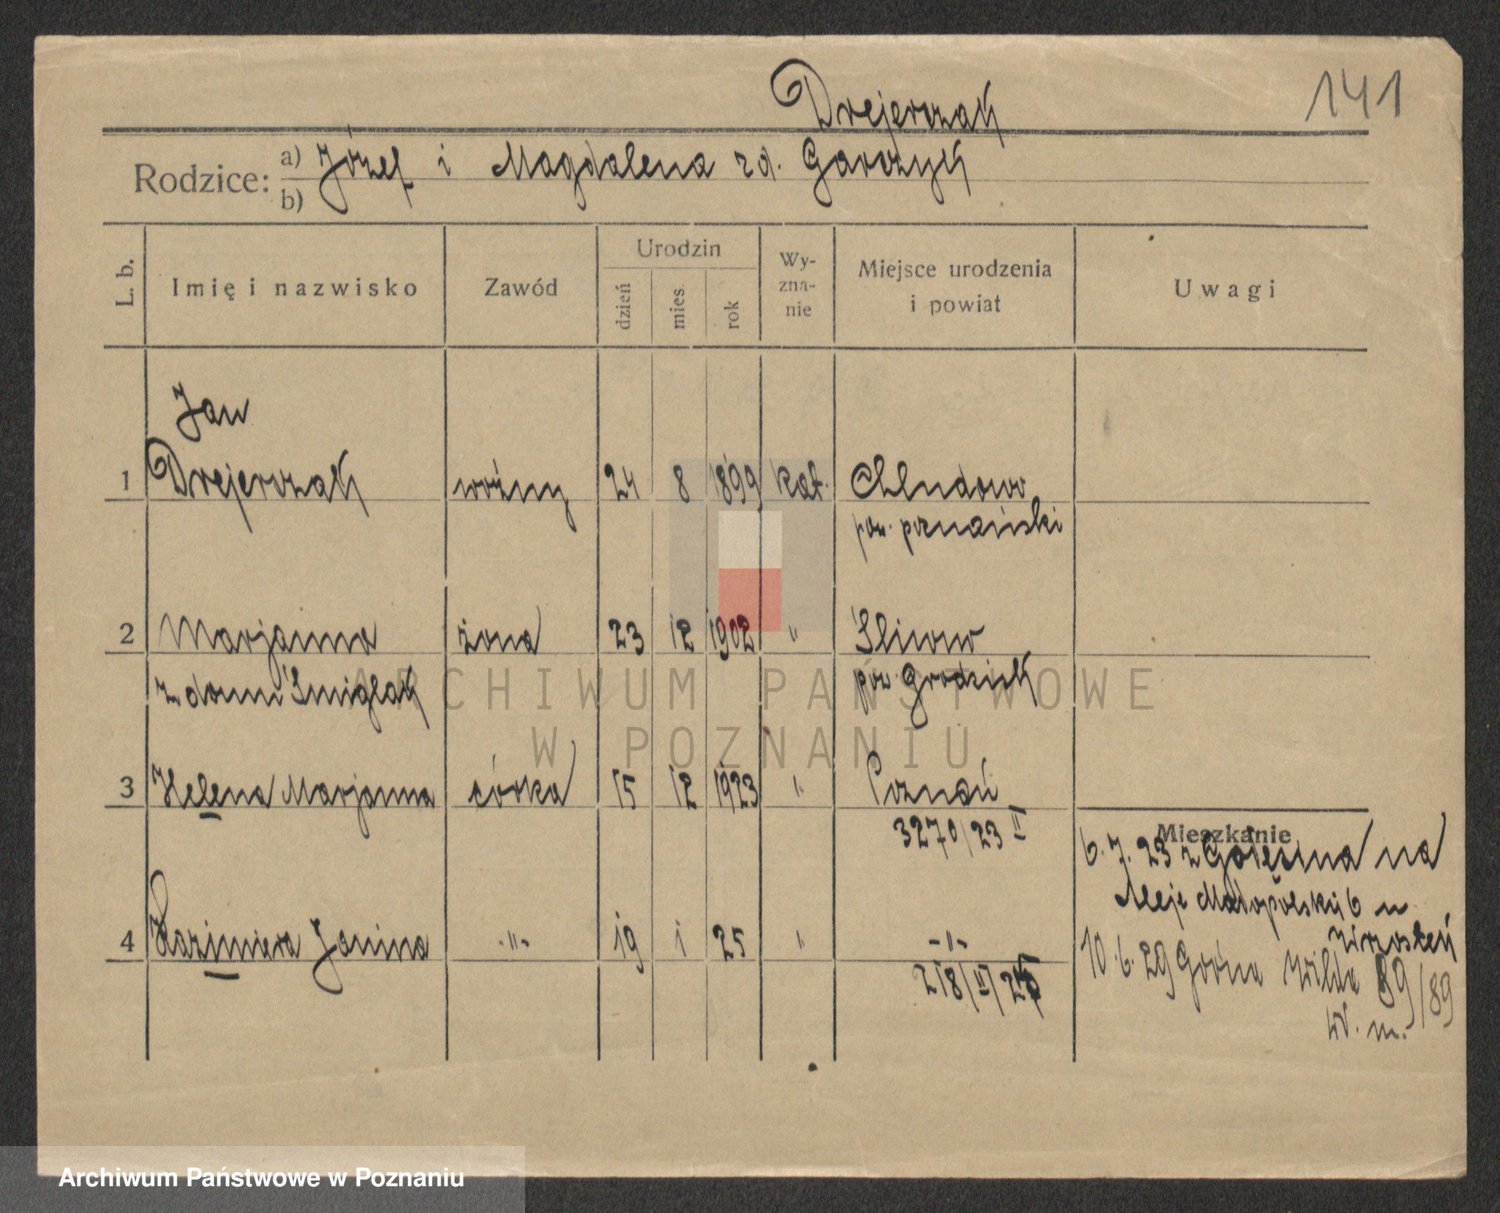 Drejerczak
141
Rodzice: a) Józef i Magdalena zd. Garczyk
b)
L. b. Imię i nazwisko Zawód Urodzin dzień mies. rok Wy-zna-nie Miejsce urodzenia i powiat Uwagi
Jan
1 Drejerczak woźny 24 8 1899 kat. Chludowo
pow. poznański
2 Marjanna żona 23 12 1902 " Śliwno
z domu Śmiglak pow. Grodzisk
3 Helena Marjanna córka 15 12 1923 " Poznań
3270/23 II
Mieszkanie
6. 7. 23 z Golęcina na
Aleje Małopolskie 6 u
4 Kazimiera Janina -"- 19 1 25 " -"-
218/II/25
10. 6. 29 Górna Wilda 89/89
w. m.
ARCHIWUM PAŃSTWOWE
W POZNANIU
Archiwum Państwowe w Poznaniu